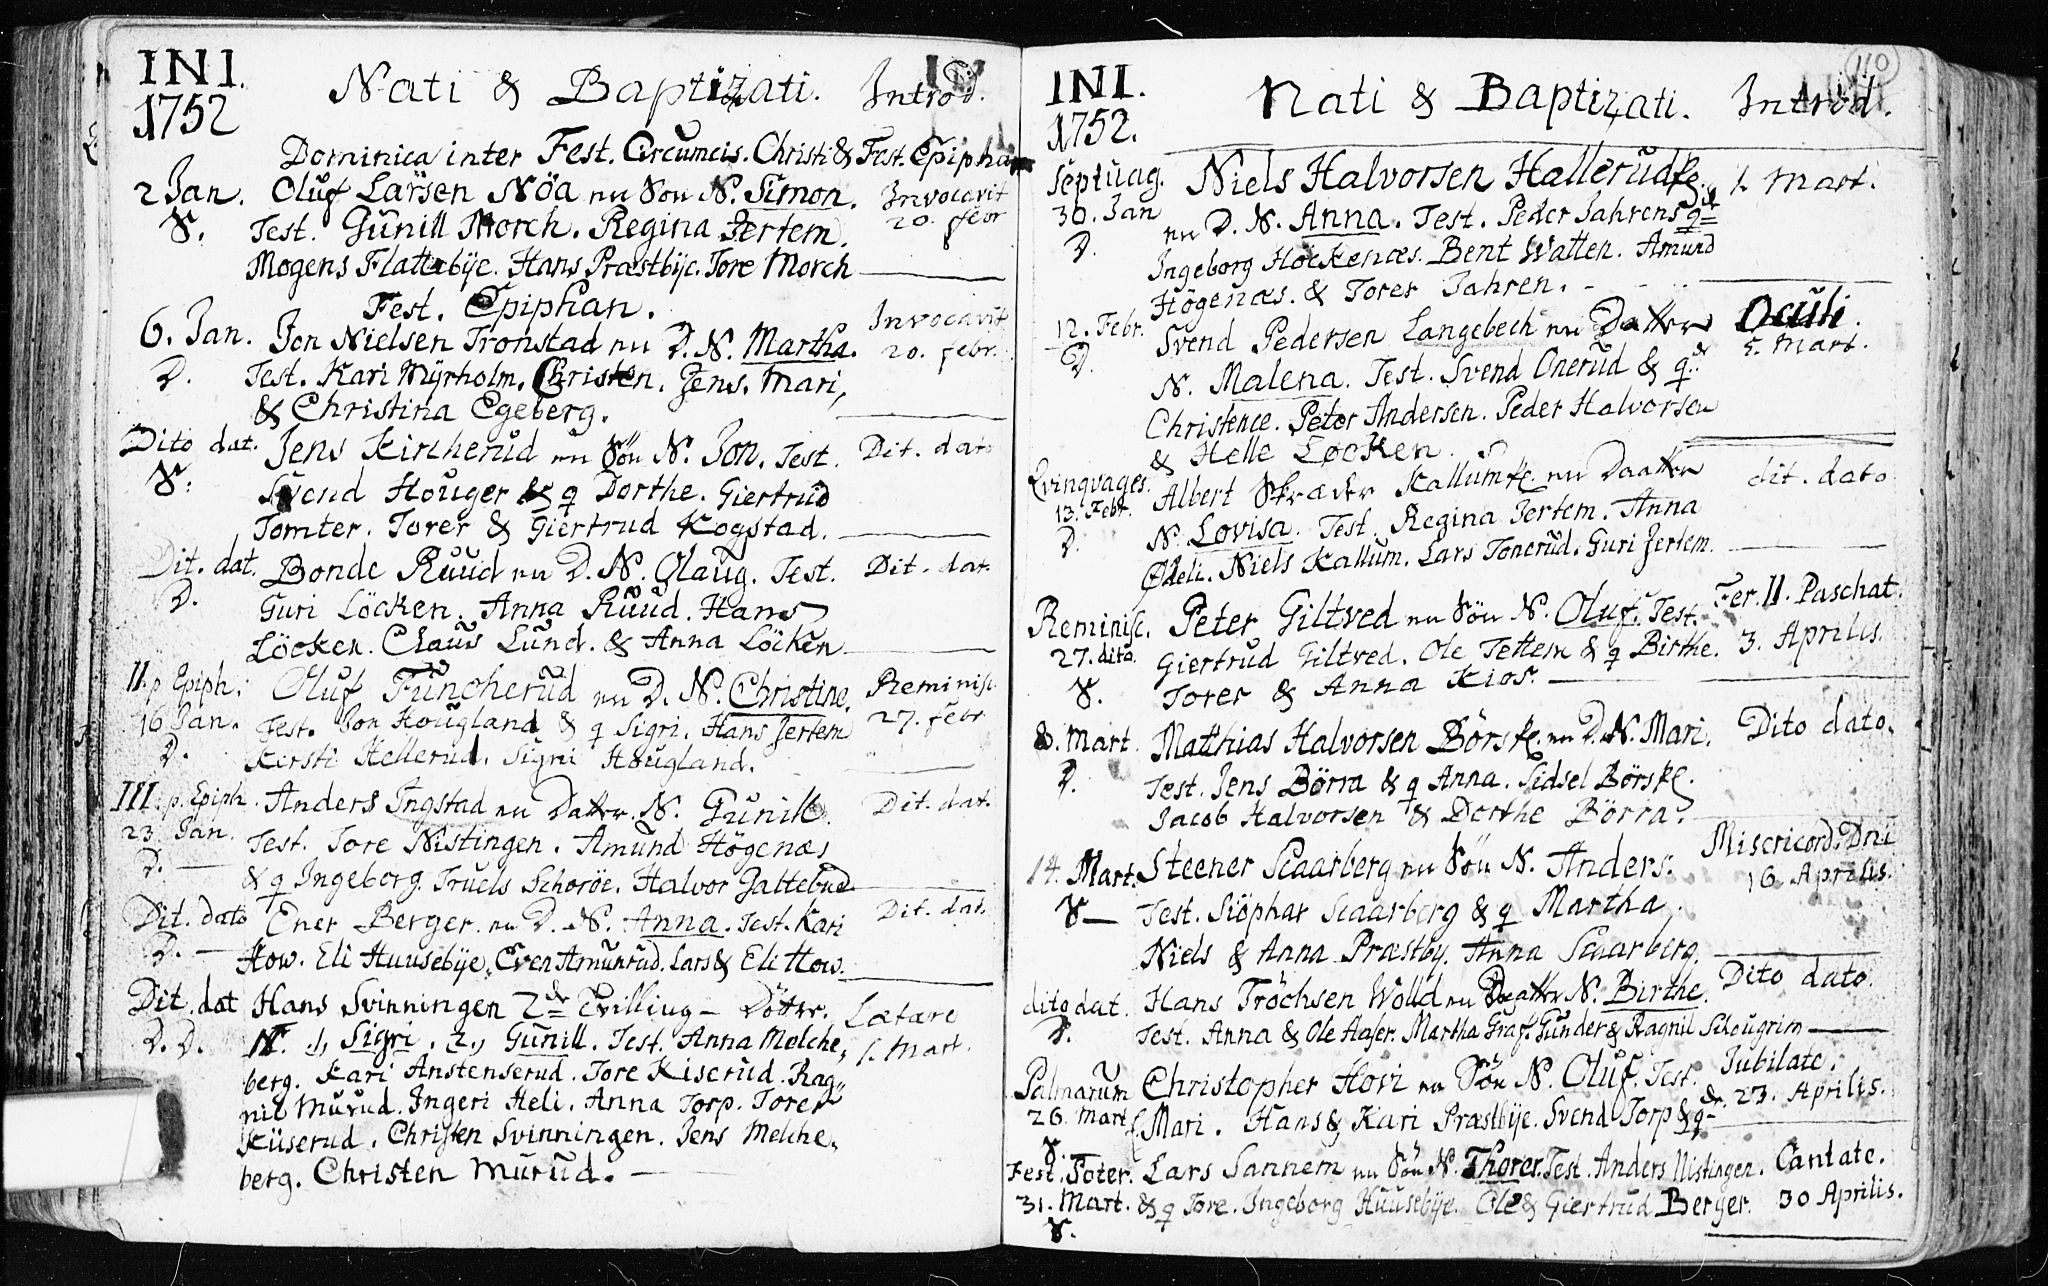 INI.
1752
Nati & Baptizati.
Introd.
Dominica inter Fest. Circumcis. Christi & Fest. Epipha
2 Jan. Oluf Larsen Nöa nu Søn N. Simon. Invocavit
S. Test. Gunill Morch. Regina Jertem. 20. febr
Mogens Flattebÿe. Hans Præstbÿe. Tore Morch
Fest. Epiphan.
6. Jan. Jon Nielsen Tronstad nu D. N. Martha. Invocavit
D. Test. Kari Mÿrholm. Christen. Jens. Mari, 20. febr.
& Christina Egeberg.
Dito dat. Jens Kircherud nu Søn N. Jon. Test. Dit. dato
S. Svend Houger & q Dorthe. Giertrud
Tomter. Torer & Giertrud Kogstad.
Dit. dat. Bonde Ruud nu D. N. Olaug. Test. Dit. dat.
D. Guri Löcken. Anna Ruud. Hans
Löcken. Claus Lund. & Anna Löcken
II. p Epiph. Oluf Funcherud nu D. N. Christine. Reminisc.
16 Jan. Test. Jon Hougland & q Sigri. Hans Jertem 27. febr
D. Kirsti Hellerud. Sigri Hougland.
III. p. Epiph. Anders Ingstad nu Datter. N. Gunill. Dit. dat.
23 Jan. Test. Tore Nistingen. Amund Högenæs
D. & q Ingeborg. Truels Schoröe. Halvor Jattebud.
Dit. dato Ener Berger. nu D. N. Anna. Test. Kari Dit. dat.
D. How. Eli Huusebÿe. Even Amunrud. Lars & Eli How.
Dit. dat Hans Svinningen 2de Tvilling- Döttr. Lætare
D. D. N. 1, Sigri. 2, Gunill. Test. Anna Melche, 1. Mart.
berg. Kari Anstenserud. Tore Kiserud. Rag,
nil Murud. Ingeri Heli. Anna Torp. Torer
Kiiserud. Christen Svinningen. Jens Melche,
berg. Christen Murud.
110
INI.
1752.
Nati & Baptizati.
Introd.
Septuag. Niels Halvorsen Hallerudk. 1. Mart.
30. Jan nu D. N. Anna. Test. Peder Jahren & q
D. Ingeborg Hockenæs. Bent Watten. Amund
Högenæs. & Torer Jahren.
12. Febr. Svend Pedersen Langebech nu Datter Oculi.
D. N. Malena. Test. Svend Onerud & q 5. Mart.
Christence. Peter Andersen. Peder Halvorsen
& Helle Løcken.
Qvinqvages. Albert Skræder Kallumk. nu Daatter dit. dato
13. Febr. N. Lovisa. Test. Regina Jertem. Anna
D. Ødeli. Niels Kallum. Lars Tonerud. Guri Jertem.
Reminisc. Peter Giltved nu Søn N. Oluf. Test. Fer. II. Paschat.
27. dito. Giertrud Giltved. Ole Tettem & q Birthe. 3. Aprilis.
S. Torer & Anna Kios.
8. Mart. Matthias Halvorsen Börsk. nu D. N. Mari. Dito dato.
D. Test. Jens Börra & q Anna. Sidsel Börsk.
Jacob Halvorsen & Dorthe Börra.
14. Mart. Steener Scaarberg nu Søn N. Anders. Misericord. Dni
S. Test. Siöphar Scaarberg & q Martha. 16 Aprilis.
Niels & Anna Præstby. Anna Scaarberg.
dito dat. Hans Tröchsen Wolld nu Daatter N. Birthe. Dito dato.
D. Test. Anna & Ole Haser. Martha Graf. Gunder & Ragnil Schougrim
Palmarum Christopher Hovi nu Søn N. Oluf. Test. Jubilate.
26. Mart. Mari. Hans & Kari Præstbÿe. Svend Torp & q 23. Aprilis.
S.
Fest. Torer. Lars Sannem nu Søn N. Thorer. Test. Anders Nistingen. Cantate.
31. Mart. & q Tore. Ingeborg Huusebÿe. Ole & Giertrud Berger. 30 Aprilis.
S.